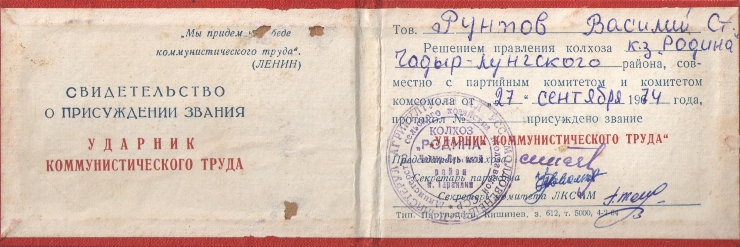 „Мы придем к победе
коммунистического труда".
(ЛЕНИН)
СВИДЕТЕЛЬСТВО
О ПРИСУЖДЕНИИ ЗВАНИЯ
УДАРНИК
КОММУНИСТИЧЕСКОГО ТРУДА
Тов. Рунтов Василий Ст.
Решением правления колхоза к-з Родина
Чадыр-Лунгского района, сов-
местно с партийным комитетом и комитетом
комсомола от „27" сентября 1974 года,
протокол № присуждено звание
"УДАРНИК КОММУНИСТИЧЕСКОГО ТРУДА"
Председатель колхоза
Секретарь парткома
Секретарь комитета ЛКСМ
Тип. Партиздата, Кишинев, з. 612, т. 5000,
КОЛХОЗ
„РОДИНА"
район